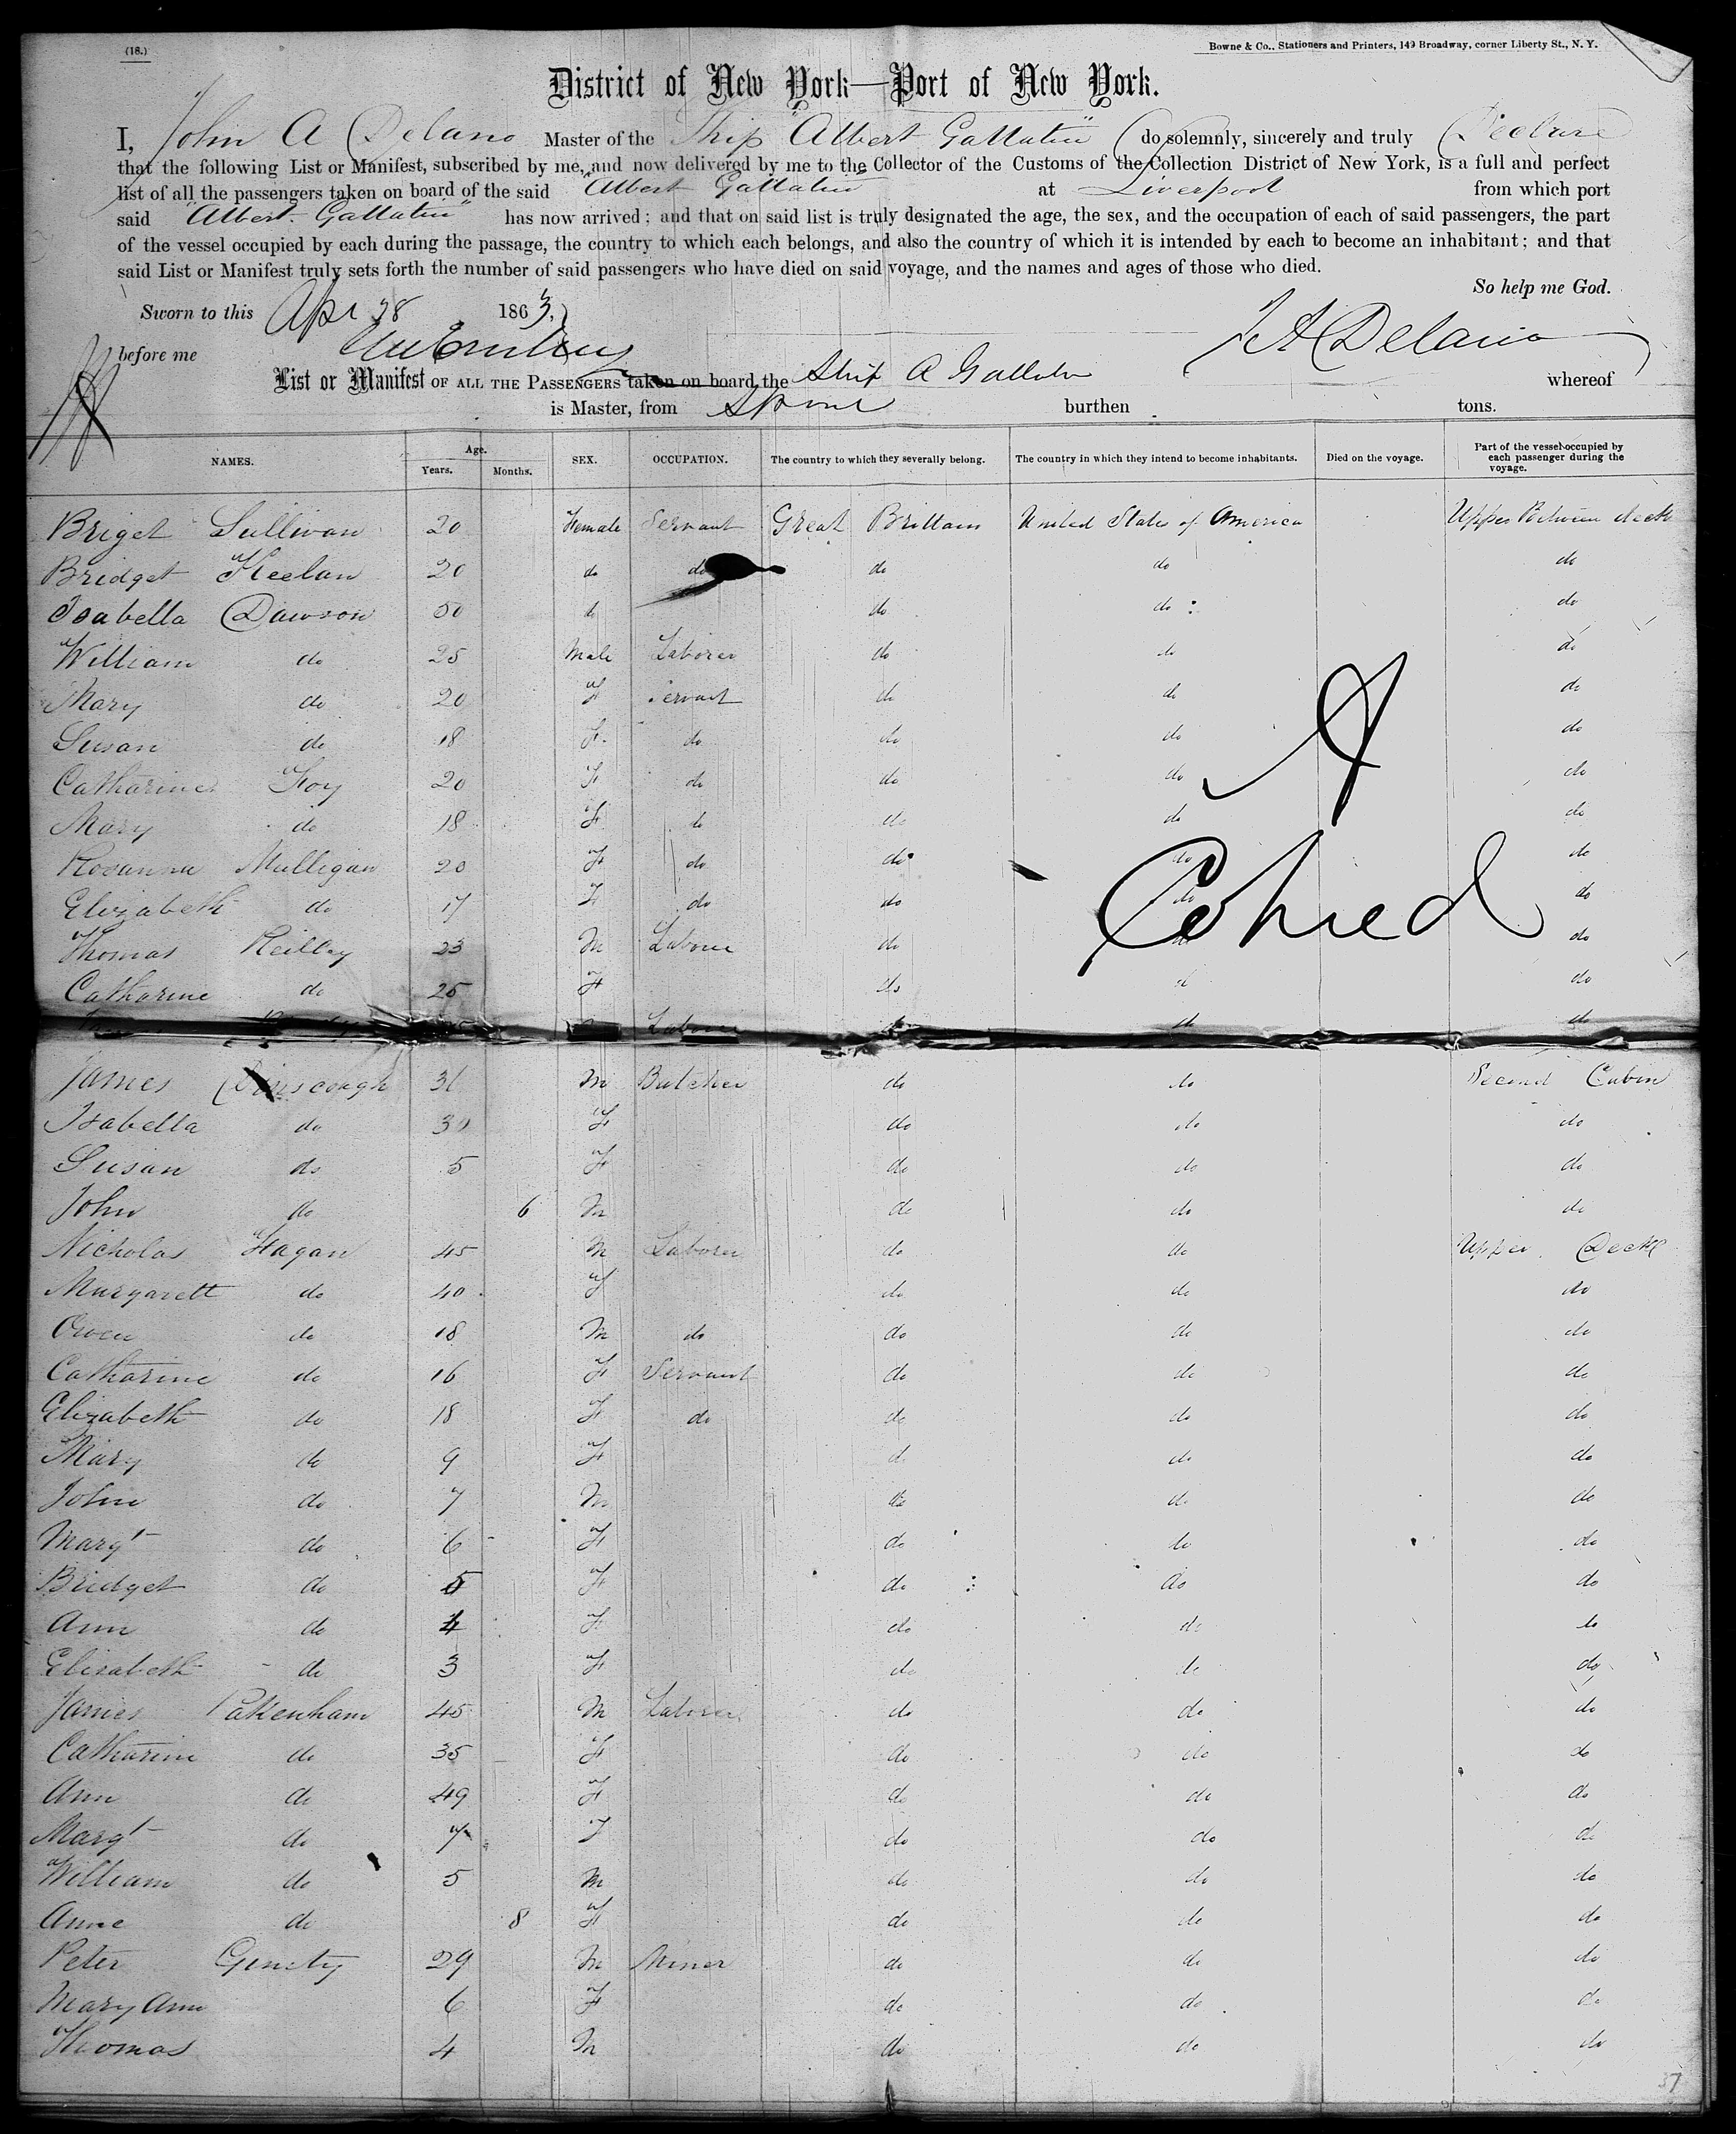 (18.)
Bowne & Co., Stationers and Printers, 149 Broadway, corner Liberty St., N. Y.
District of New York—Port of New York.
I, John A Delano Master of the Ship "Albert Gallatin" do solemnly, sincerely and truly Declare
that the following List or Manifest, subscribed by me, and now delivered by me to the Collector of the Customs of the Collection District of New York, is a full and perfect
list of all the passengers taken on board of the said "Albert Gallatin" at Liverpool from which port
said "Albert Gallatin" has now arrived; and that on said list is truly designated the age, the sex, and the occupation of each of said passengers, the part
of the vessel occupied by each during the passage, the country to which each belongs, and also the country of which it is intended by each to become an inhabitant; and that
said List or Manifest truly sets forth the number of said passengers who have died on said voyage, and the names and ages of those who died.
So help me God.
Sworn to this Apr 28 1863,
before me J A Delano
List or Manifest OF ALL THE PASSENGERS taken on board the Ship A Gallatin whereof
is Master, from burthen tons.
NAMES. Age. Years. Months. SEX. OCCUPATION. The country to which they severally belong. The country in which they intend to become inhabitants. Died on the voyage. Part of the vessel occupied by each passenger during the voyage.
Briget Sullivan 20 Female Servant Great Brittain United States of America Upper Between deck
Bridget Keelan 20 do do do do do
Isabella Dawson 50 do do do do
William do 25 Male Laborer do do do
Mary do 20 F Servant do do do
Susan do 18 F do do do do
Catharine Foy 20 F do do do do
Mary do 18 F do do do do
Rosanna Mulligan 20 F do do do do
Elizabeth do 17 F do do do do
Thomas Reilley 23 M Laborer do do do
Catharine do 25 F do do do
Laborer do do do
A
Copied
James 31 M Butcher do do Second Cabin
Isabella do 30 F do do do
Susan do 5 F do do do
John do 6 M do do do
Nicholas Hagan 45 M Laborer do do Upper Deck
Margarett do 40 F do do do
Owen do 18 M do do do do
Catharine do 16 F Servant do do do
Elizabeth do 18 F do do do do
Mary do 9 F do do do
John do 7 M do do do
Margt do 6 F do do do
Bridget do 5 F do do do
Ann do 4 F do do do
Elisabeth do 3 F do do do
James Pakenham 45 M Laborer do do do
Catharine do 35 F do do do
Ann do 49 F do do do
Margt do 7 F do do do
William do 5 M do do do
Anne do 8 F do do do
Peter Ginsty 29 M Miner do do do
Mary Ann 6 F do do do
Thomas 4 M do do do
37